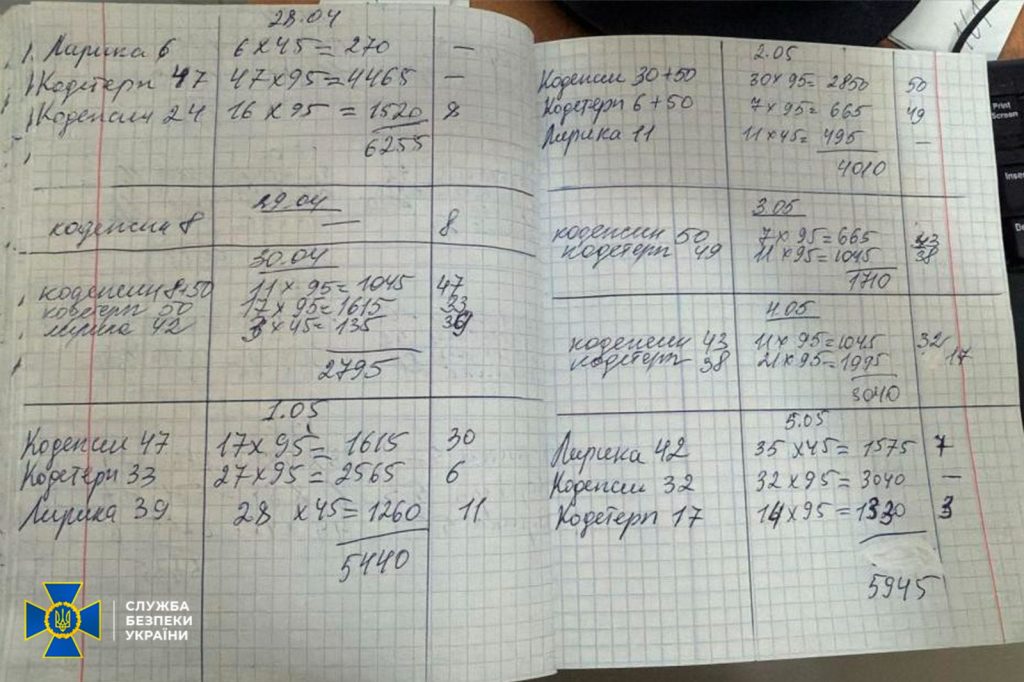 28.04
1. Лирика 6 6х45= 270 —
Кодетерп 47 47х95=4465 —
Кодепсин 24 16х95 = 1520 8
6255
29.04
кодепсин 8 — 8
30.04
кодепсин 8+50 11х 95= 1045 47
кодетерп 50 17х 95= 1615 33
лирика 42 3х45= 135 39
2795
1.05
Кодепсин 47 17х 95= 1615 30
Кодетерп 33 27х95= 2565 6
Лирика 39 28 х45= 1260 11
5440
2.05
Кодепсин 30+50 30х 95= 2850 50
Кодетерп 6+50 7х 95= 665 49
Лирика 11 11х45= 495 —
4010
3.05
кодепсин 50 7х 95=665 43
кодетерп 49 11х95=1045 38
1710
4.05
кодепсин 43 11х 95=1045 32
кодетерп 38 21х95=1995 17
3040
5.05
Лирика 42 35 х45= 1575 7
Кодепсин 32 32х95= 3040 —
Кодетерп 17 14х95=1330 3
5945
СЛУЖБА
БЕЗПЕКИ
УКРАЇНИ
Print
Screen